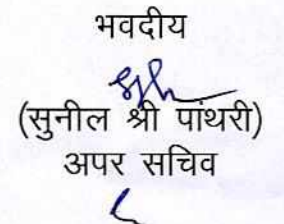 भवदीय
(सुनील श्री पांथरी)
अपर सचिव